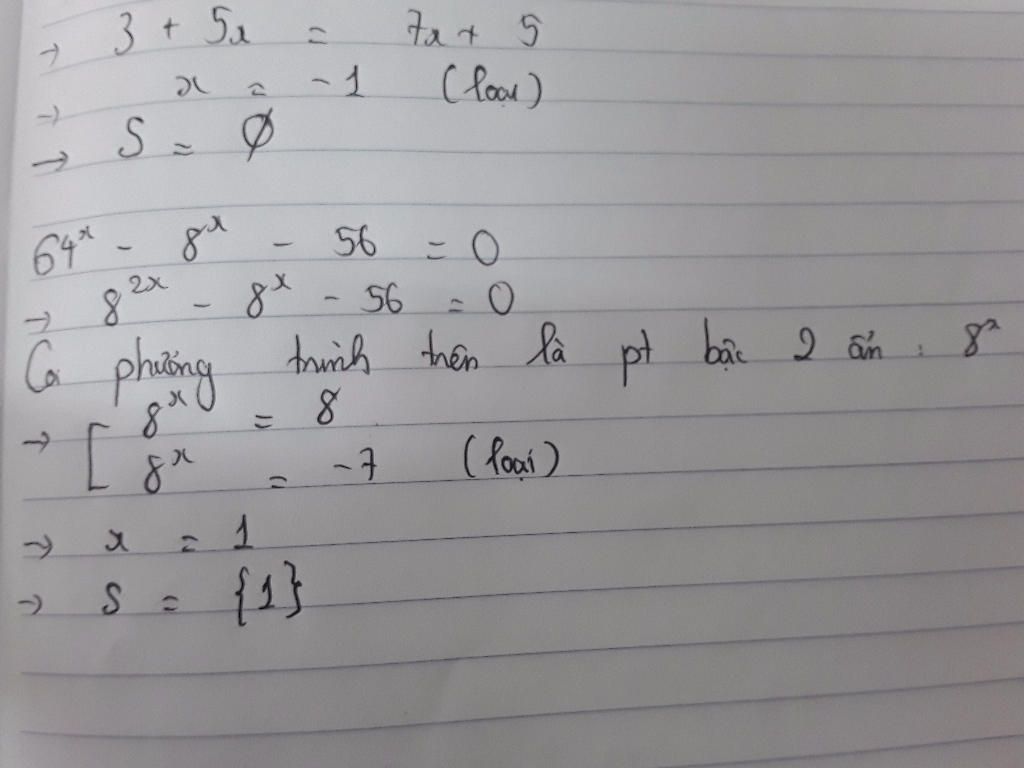 → 3 + 5x = 7x + 5
→ x = -1 (loại)
→ S = ∅
64^x - 8^x - 56 = 0
→ 8^2x - 8^x - 56 = 0
Coi phương trình trên là pt bậc 2 ẩn : 8^x
→ [ 8^x = 8
8^x = -7 (loại)
→ x = 1
→ S = {1}